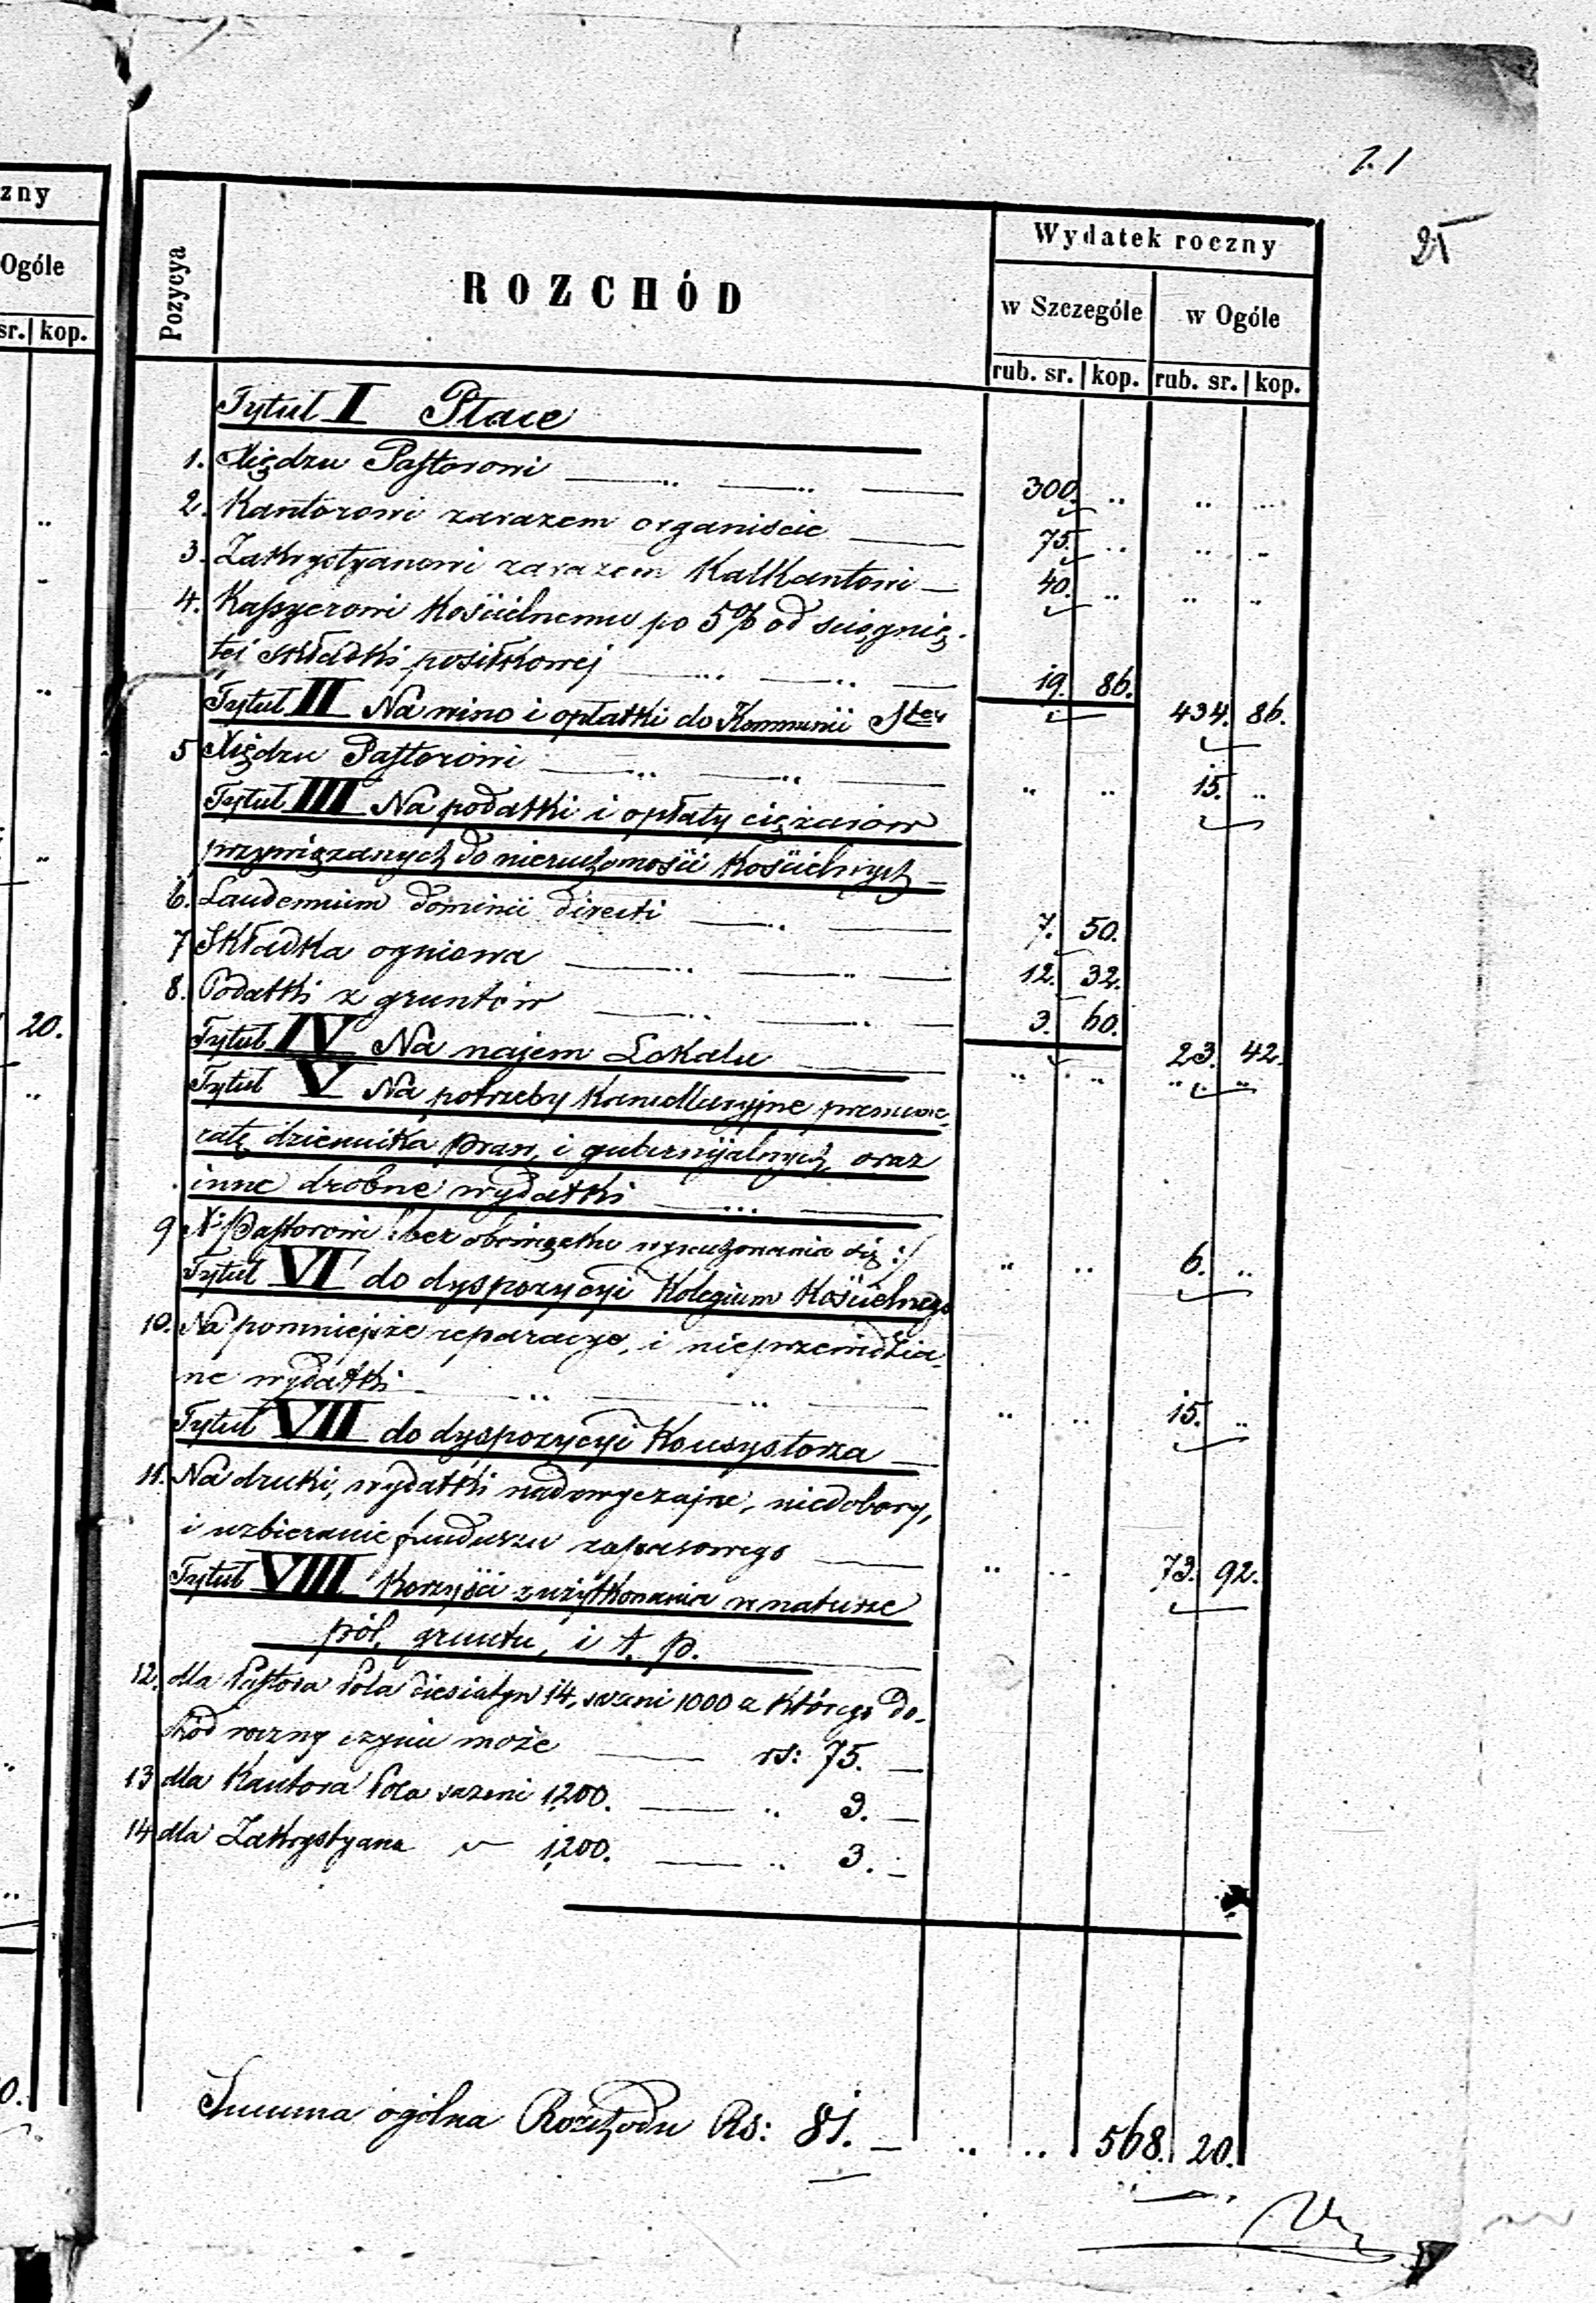 21
25
zny
Ogóle
sr. kop.
20.
Pozycya
ROZCHÓD
Wydatek roczny
w Szczególe
w Ogóle
rub. sr. kop. rub. sr. kop.
Tytuł I Płace
1. Xiędzu Pastorowi 300. .. .. ..
2. Kantorowi zarazem organiście 75. .. .. ..
3. Zakrystyanowi zarazem Kalkantowi 40. .. .. ..
4. Kassyerowi Kościelnemu po 5% od sciągnię-
téj składki posiłkowej 19. 86.
434. 86.
Tytuł II Na wino i opłatki do Kommunii Stej
5 Xiędzu Pastorowi .. .. 15. ..
Tytuł III Na podatki i opłaty ciężarów
przywiązanych do nieruchomości Kościelnych
6. Laudemium dominii directi 7. 50.
7 Składka ogniowa 12. 32.
8. Podatki z gruntów 3. 60.
23. 42.
Tytuł IV Na najem Lokalu .. .. .. ..
Tytuł V Na potrzeby Kancellaryjne prenume-
ratę dziennika praw, i gubernijalnych, oraz
inne drobne wydatki
9 X: Pastorowi /: bez obowiązku wyrachowania się :/ .. .. 6. ..
Tytuł VI do dyspozycyi Kolegium Kościelnego
10. Na pomniejsze reparacye, i nieprzewidzia-
ne wydatki .. .. 15. ..
Tytuł VII do dyspozycyi Konsystorza
11. Na druki, wydatki nadzwyczajne, niedobory,
i uzbieranie funduszu zapasowego .. .. 73. 92.
Tytuł VIII Korzyści z użytkowania w naturze
pól, gruntu, i t. p.
12. dla Pastora Pola dziesiatyn 14, sazeni 1000 z którego do-
chód roczny czynić może rs: 75.
13 dla Kantora Pola sazeni 1200. .. 3.
14 dla Zakrystyana 1200. .. 3.
Summa ogólna Rozchodu Rs: 81. .. .. 568. 20.